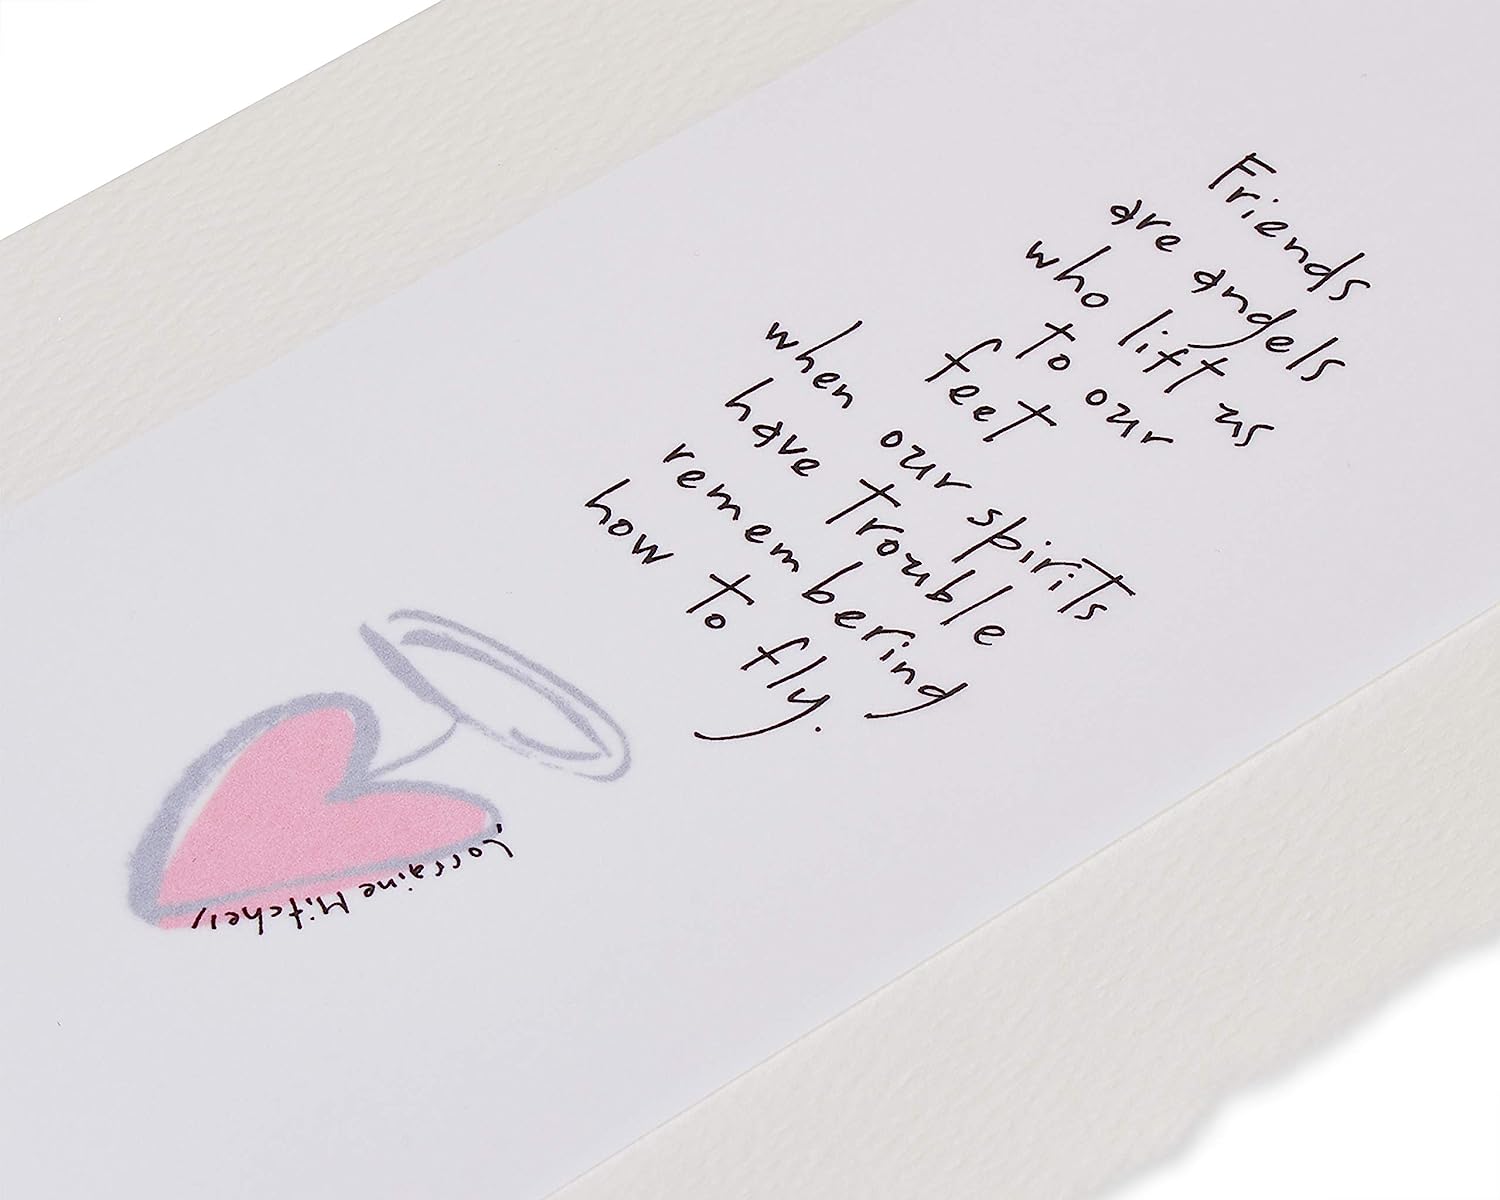 Friends
are angels
who lift us
to our
feet
when our spirits
have trouble
remembering
how to fly.
Lorraine Mitchell